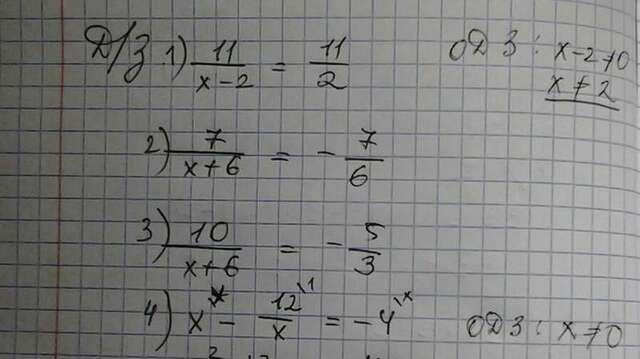 Д/З 1) 11/(x-2) = 11/2 ОДЗ: x-2≠0
x≠2
2) 7/(x+6) = -7/6
3) 10/(x+6) = -5/3
4) x\x - 12\1/x = -4\x ОДЗ: x≠0